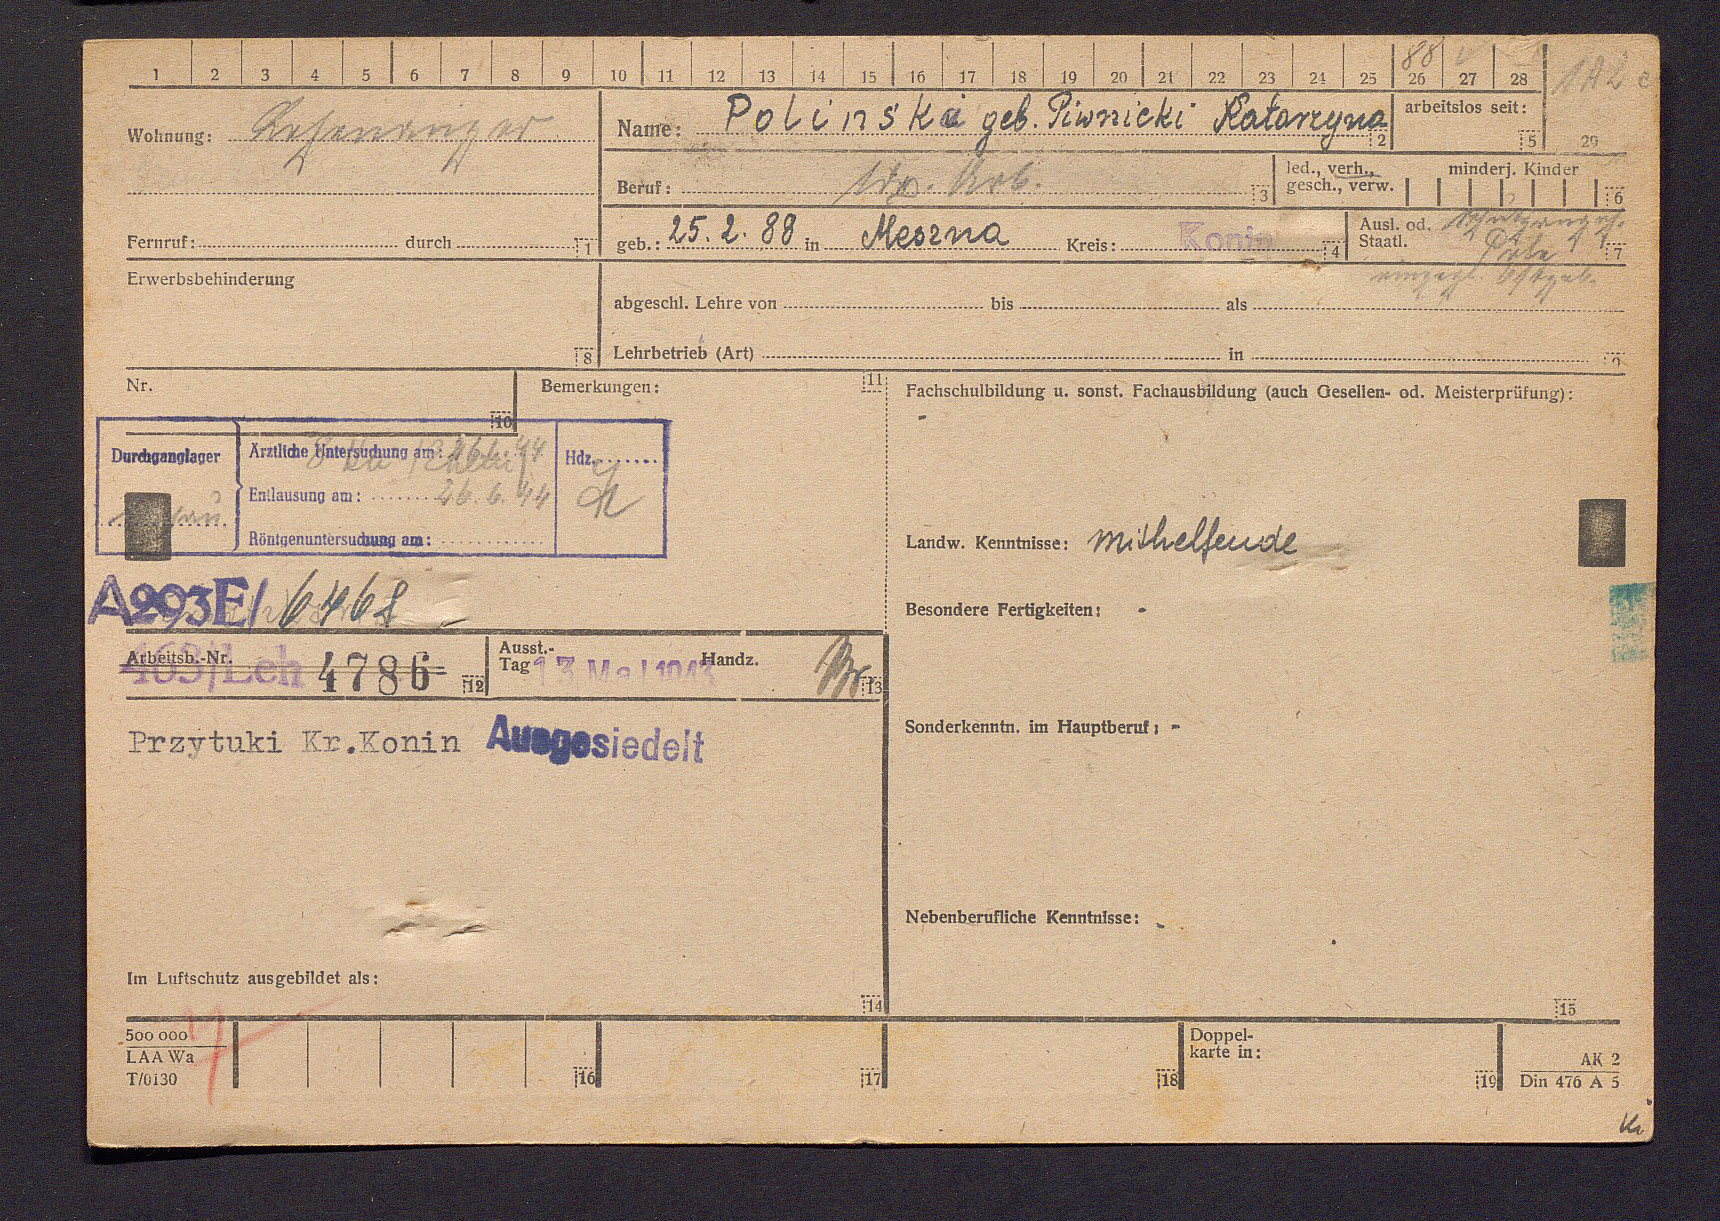 1 2 3 4 5 6 7 8 9 10 11 12 13 14 15 16 17 18 19 20 21 22 23 24 25 26 27 28
88
Wohnung:
Name: Polinska geb. Piwnicki Katarzyna 2
arbeitslos seit: 5 29
Beruf: 3
led., verh., gesch., verw.
minderj. Kinder 6
Fernruf: durch 1
geb.: 25. 2. 88 in Meszna Kreis: Konin 4
Ausl. od. Staatl. 7
Erwerbsbehinderung 8
abgeschl. Lehre von bis als
Lehrbetrieb (Art) in 9
Nr. 10
Bemerkungen: 11
Durchganglager
Ärztliche Untersuchung am: 26.6.44
Entlausung am: 26.6.44
Röntgenuntersuchung am:
Hdz.
A293E/ 6468
Arbeitsb.-Nr. 463/Leh 4786 12
Ausst.-Tag 13. Mai 1943 Handz. 13
Przytuki Kr.Konin Ausgesiedelt
Im Luftschutz ausgebildet als:
14
Fachschulbildung u. sonst. Fachausbildung (auch Gesellen- od. Meisterprüfung):
-
Landw. Kenntnisse: mithelfende
Besondere Fertigkeiten: -
Sonderkenntn. im Hauptberuf: -
Nebenberufliche Kenntnisse: -
15
500 000
LAA Wa
T/0130
16 17 18
Doppel-
karte in:
19
AK 2
Din 476 A 5